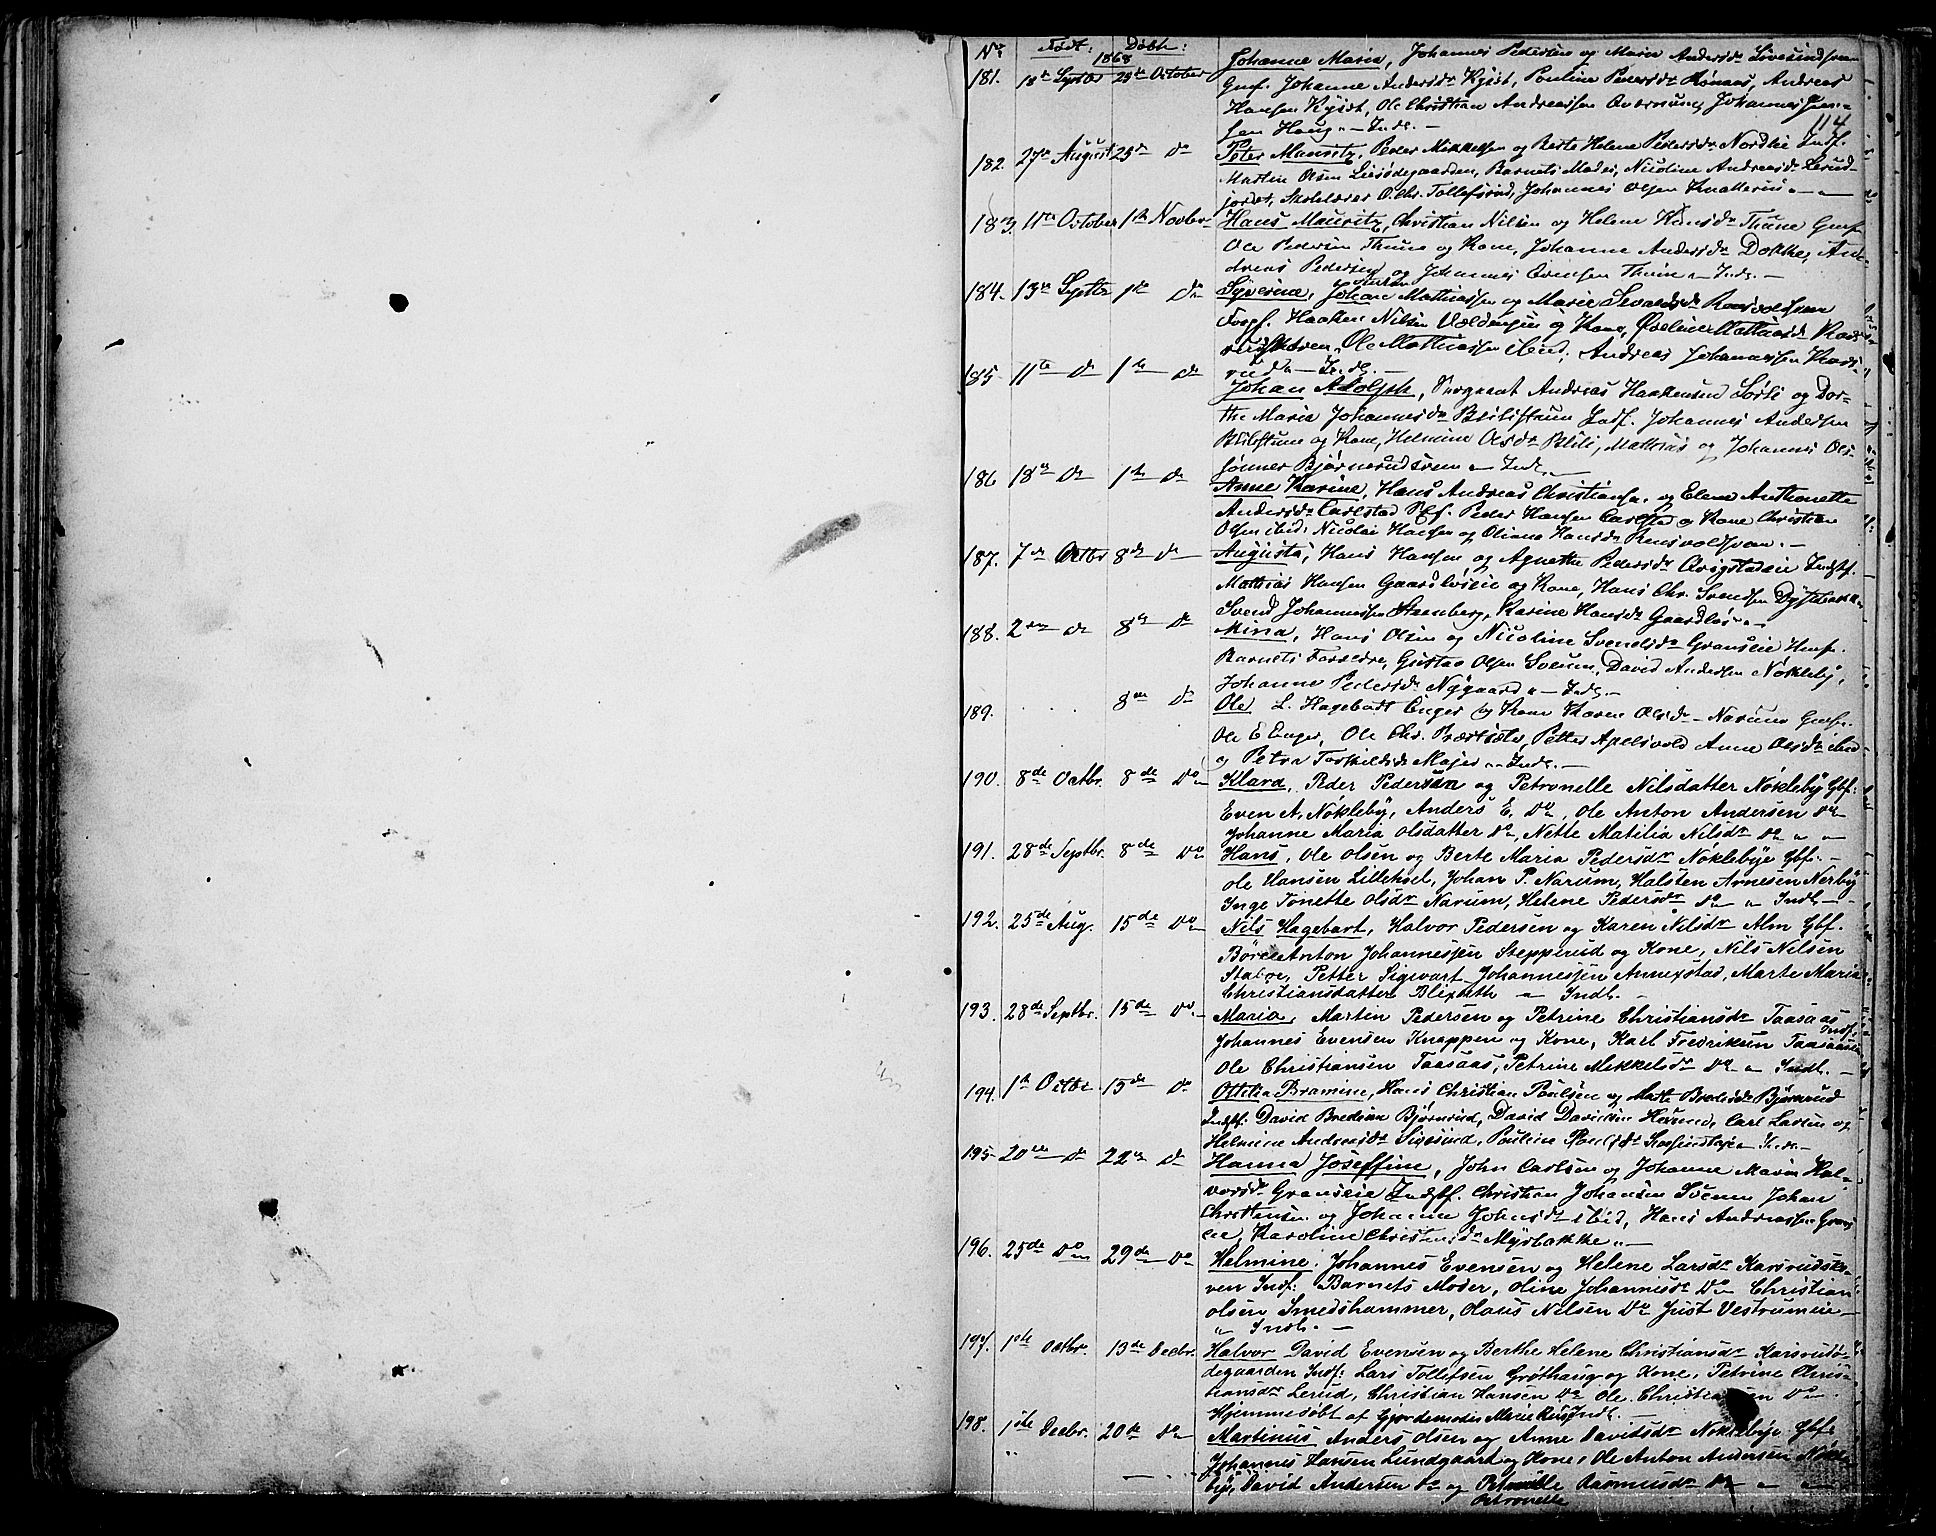 No Født: Døbt:
1868
181. 18de Septbr 25de October Johanne Maria, Johannes Pedersen og Maria Andersdr
Gmf. Johanne Andersdr Kyset, Pauline Pedersdr Rønaas, Andreas
Hansen Kyset, Ole Christian Andreassen Qværnung, Johannes Jen-
sen Haug " — Indl. —
114
182. 27de August 25de do Peter Mauritz, Peder Mikkelsen og Berte Helene Pedersdr Nordlie Indf.
Martin Olsen Liesødegaarden, Barnets Moder, Nicoline Andreasdr Lerud-
jordet, Skolelærer O. Chr. Tollefsrud, Johannes Olsen Knatterus " — "
183. 11te October 1ste Novbr Hans Mauritz, Christian Nilsen og Helene Hansdr Thune Gmf.
Ole Pedersen Thune og Kone, Johanne Andersdr Dokke, An-
dreas Pedersen og Johannes Evensen Thune " — Indl. —
184. 13de Septbr 1ste do Syverine, Johan Mathiassen og Marie Sevaldsdr
Haaken Nilsen og Kone, Mathiasdr Kars-
rudskæven, Ole Mathiassen ibid, Andreas Johannessen Kars-
rud " — Indl. —
185. 11te do 1ste do Johan Adolph, Sergeant Andreas Haakensen Sørli og Dor-
the Maria Johannesdr Indf. Johannes Andersen
og Kone, Helmine Olsdr Blili, Mathias og Johannes Ols-
sønner Bjørnerudsveen " — Indl. —
186. 18de do 1ste do Anne Karine, Hans Andreas Christiansen og Elene Anthonette
Andersdr Carlstad Peder Hansen Carlstad og Kone Christian
Olsen ibid, Nicolai Hansen og Oliana Hansdr —
187. 7de Octbr 8de do Augusta, Hans Hansen og Agnethe Pedersdr Qvigstadeie Indstf.
Mathias Hansen Gaardløseie og Kone, Hans Chr. Svendsen
Svend Johannessen Stenberg, Karine Hansdr Gaardløs " —
188. 2den do 8de do Mina, Hans Olsen og Nicoline Svendsdr Granseie Hmf.
Barnets Forældre, Gustav Olsen Sveum, David Andersen Nøkleby,
Johanne Pedersdr Nygaard " — Indl. —
189. . . . 8de do Ole L. Hagebart Enger og Kone Karen Olsdr Narum Gmf.
Ole E Enger, Ole Chr. Præstsæter, Petter Apelsvold Anne Olsdr ibid
og Petra Torkildsdr Majer " — Indl. —
190. 8de Octbr. 8de do Klara, Peder Pedersen og Petronelle Nilsdatter Nøkleby Gbf:
Even A. Nøkleby, Anders E. do, Ole Anton Andersen do
Johanne Maria Olsdatter do, Nette Matilia Nilsdr do " "
191. 28de Septbr. 8de do Hans, Ole Olsen og Berte Maria Pedersdr Nøklebye Gbf: —
Ole Hansen Lilleheel, Johan P. Narum, Halsten Arnesen Nerby
Inge Tonette Olsdr Narum, Helene Pedersdr do — " Indl. —
192. 25de Aug. 15de do Nils Hagebart, Halvor Pedersen og Karen Nilsdr Alm Gbf.
Børe Anton Johannessen Stepperud og Kone, Nils Nilsen
Staløe, Petter Sigvart Johannessen Annexstad, Marte Maria
Christiansdatter Blixrath " Indl. —
193. 28de Septbr. 15de do Maria, Martin Pedersen og Petrine Christiansdr Taasaas Indf.
Johannes Evensen Knappen og Kone, Karl Fredriksen Taasaasen
Ole Christiansen Taasaas, Petrine Mekkelsdr do " Indl. —
194. 1ste Octbr 15de do Ottelia Bramine, Hans Christian Poulsen og Mathe Bredesdr Bjørnrud
Indstf. David Bredesen Bjørnrud, David Davidsen Carl Larsen og
Helmine Andreasdr Pauline Poulsdr Indl. —
195 20de do 22de do Hanna Joseffine, John Carlsen og Johanne Marie Hal-
vorsdr Granseie Indstf. Christian Johansen Sveum Johan
Christensen og Johanna Johnsdr ibid, Hans Andreassen Grans-
eie, Karoline Christensdr Myrbakke " —
196. 25de do 29de do Helmine, Johannes Evensen og Helene Larsdr Karsrudskæ-
ven Indf: Barnets Moder, Oline Johannesdr do Christian
Olsen Smedshammer, Olaus Nilsen do Just Vestrumeie —
" Indl. —
197. 1ste Octbr. 13de Decbr. Halvor David Evensen og Berthe Helene Christiansdr Karsrudø-
degaarden Indf: Lars Tollefsen Grøthaug og Kone, Petrine Chris-
tiansdr Lerud, Christian Hansen do Ole Christiansen do
Hjemmedøbt af Gjordemoder Marie Rus Indl. —
198. 1ste Decbr. 20de do Martinus Anders Olsen og Anne Davidsdr Nøklebye Gbf.
Johannes Hansen Lundgaart og Kone, Ole Anton Andersen Nøkle-
bye, David Andersen do og Petronille Rasmusdr do " "
Petronelle